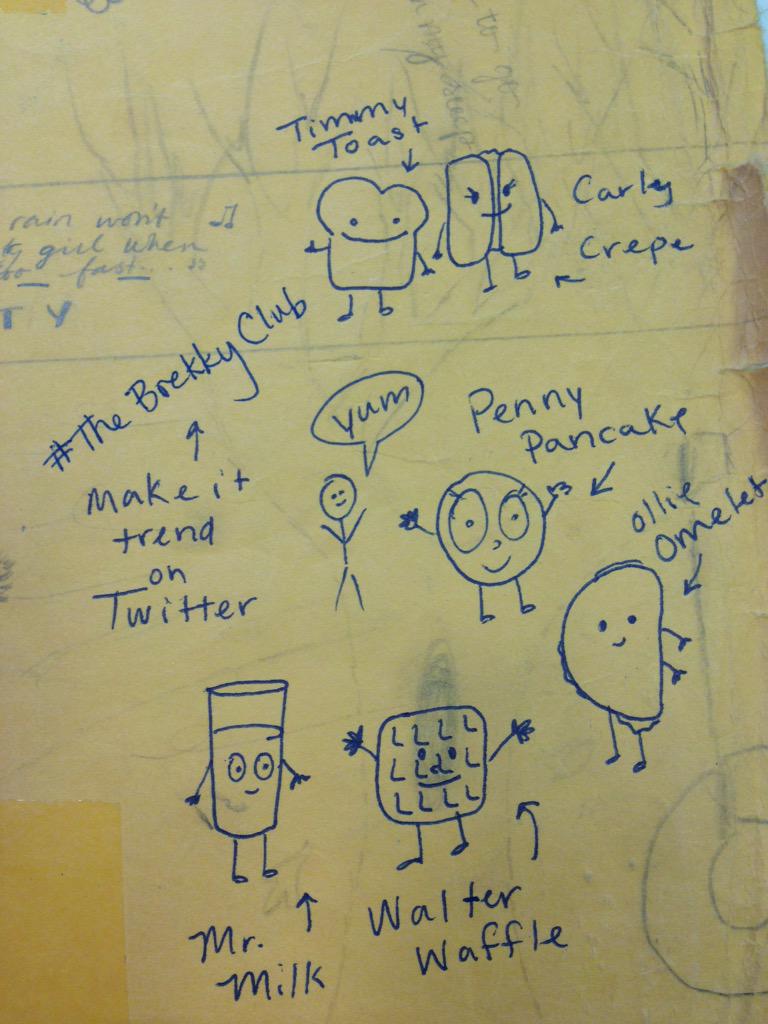 to go
Timmy
Toast
Carly
Crepe
rain won't
girl when
fast...
T Y
#The Brekky Club
Make it
trend
on
Twitter
yum
Penny
Pancake
Ollie
Omelet
Mr.
Milk
Walter
Waffle